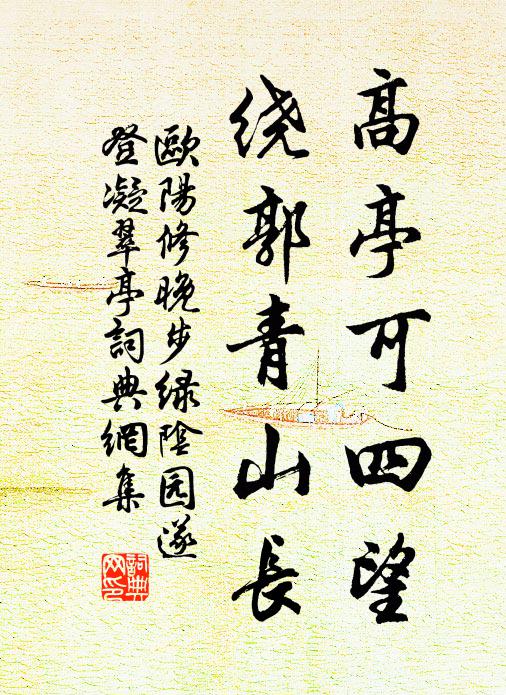 高亭可四望
绕郭青山长
歐陽修晚步绿陰园遂
登凝翠亭詞典網集
詞典
网印